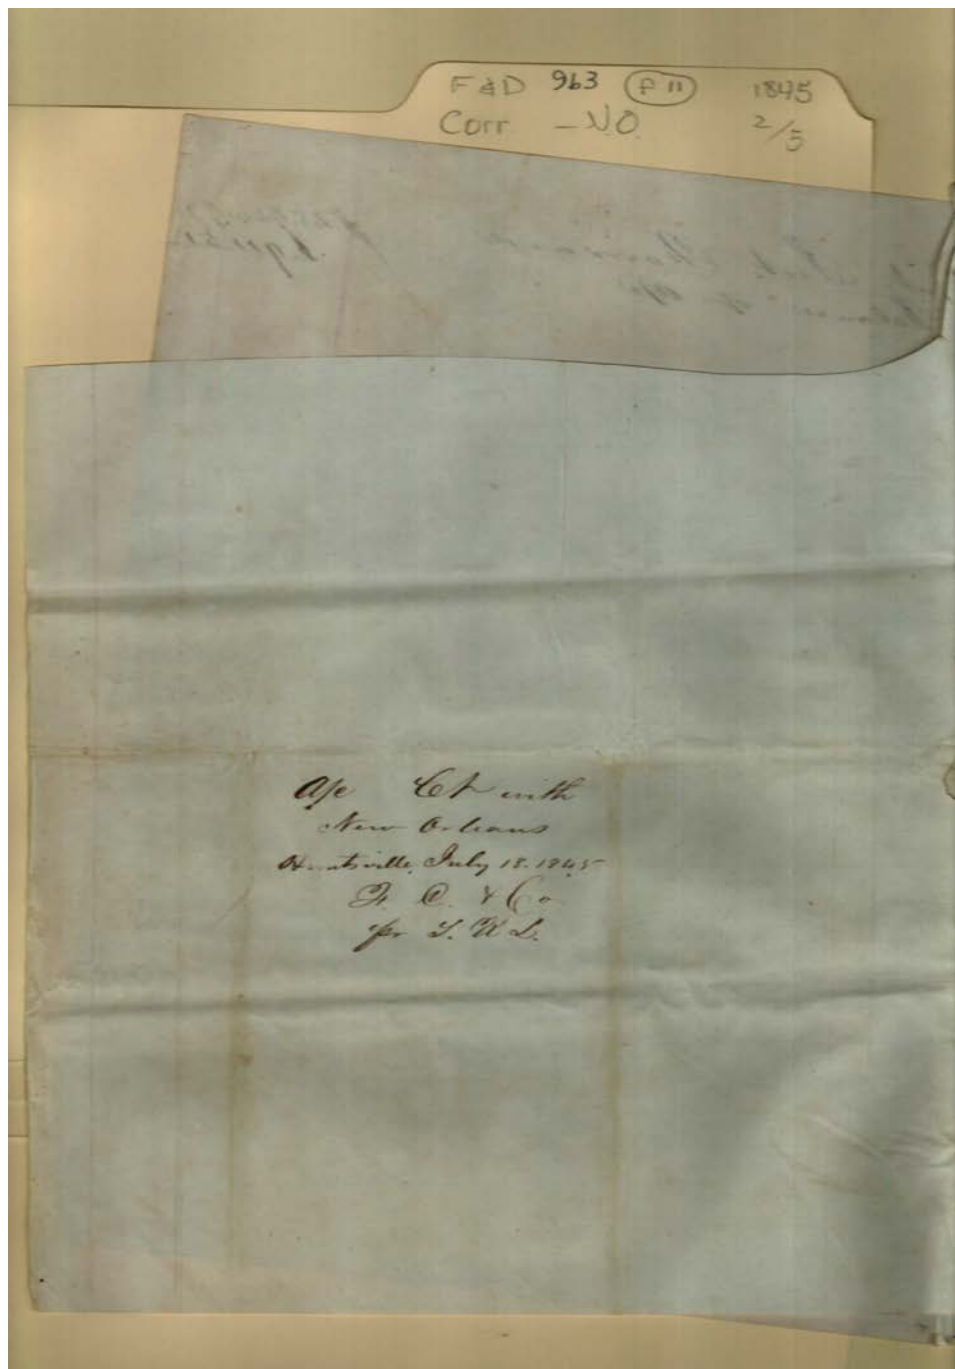 F & D 963 f 11 1845
Corr. - N.O. 2/5
A/c Ct with
New Orleans
Huntsville, July 18. 1845
F. C. & Co
per S. K L.